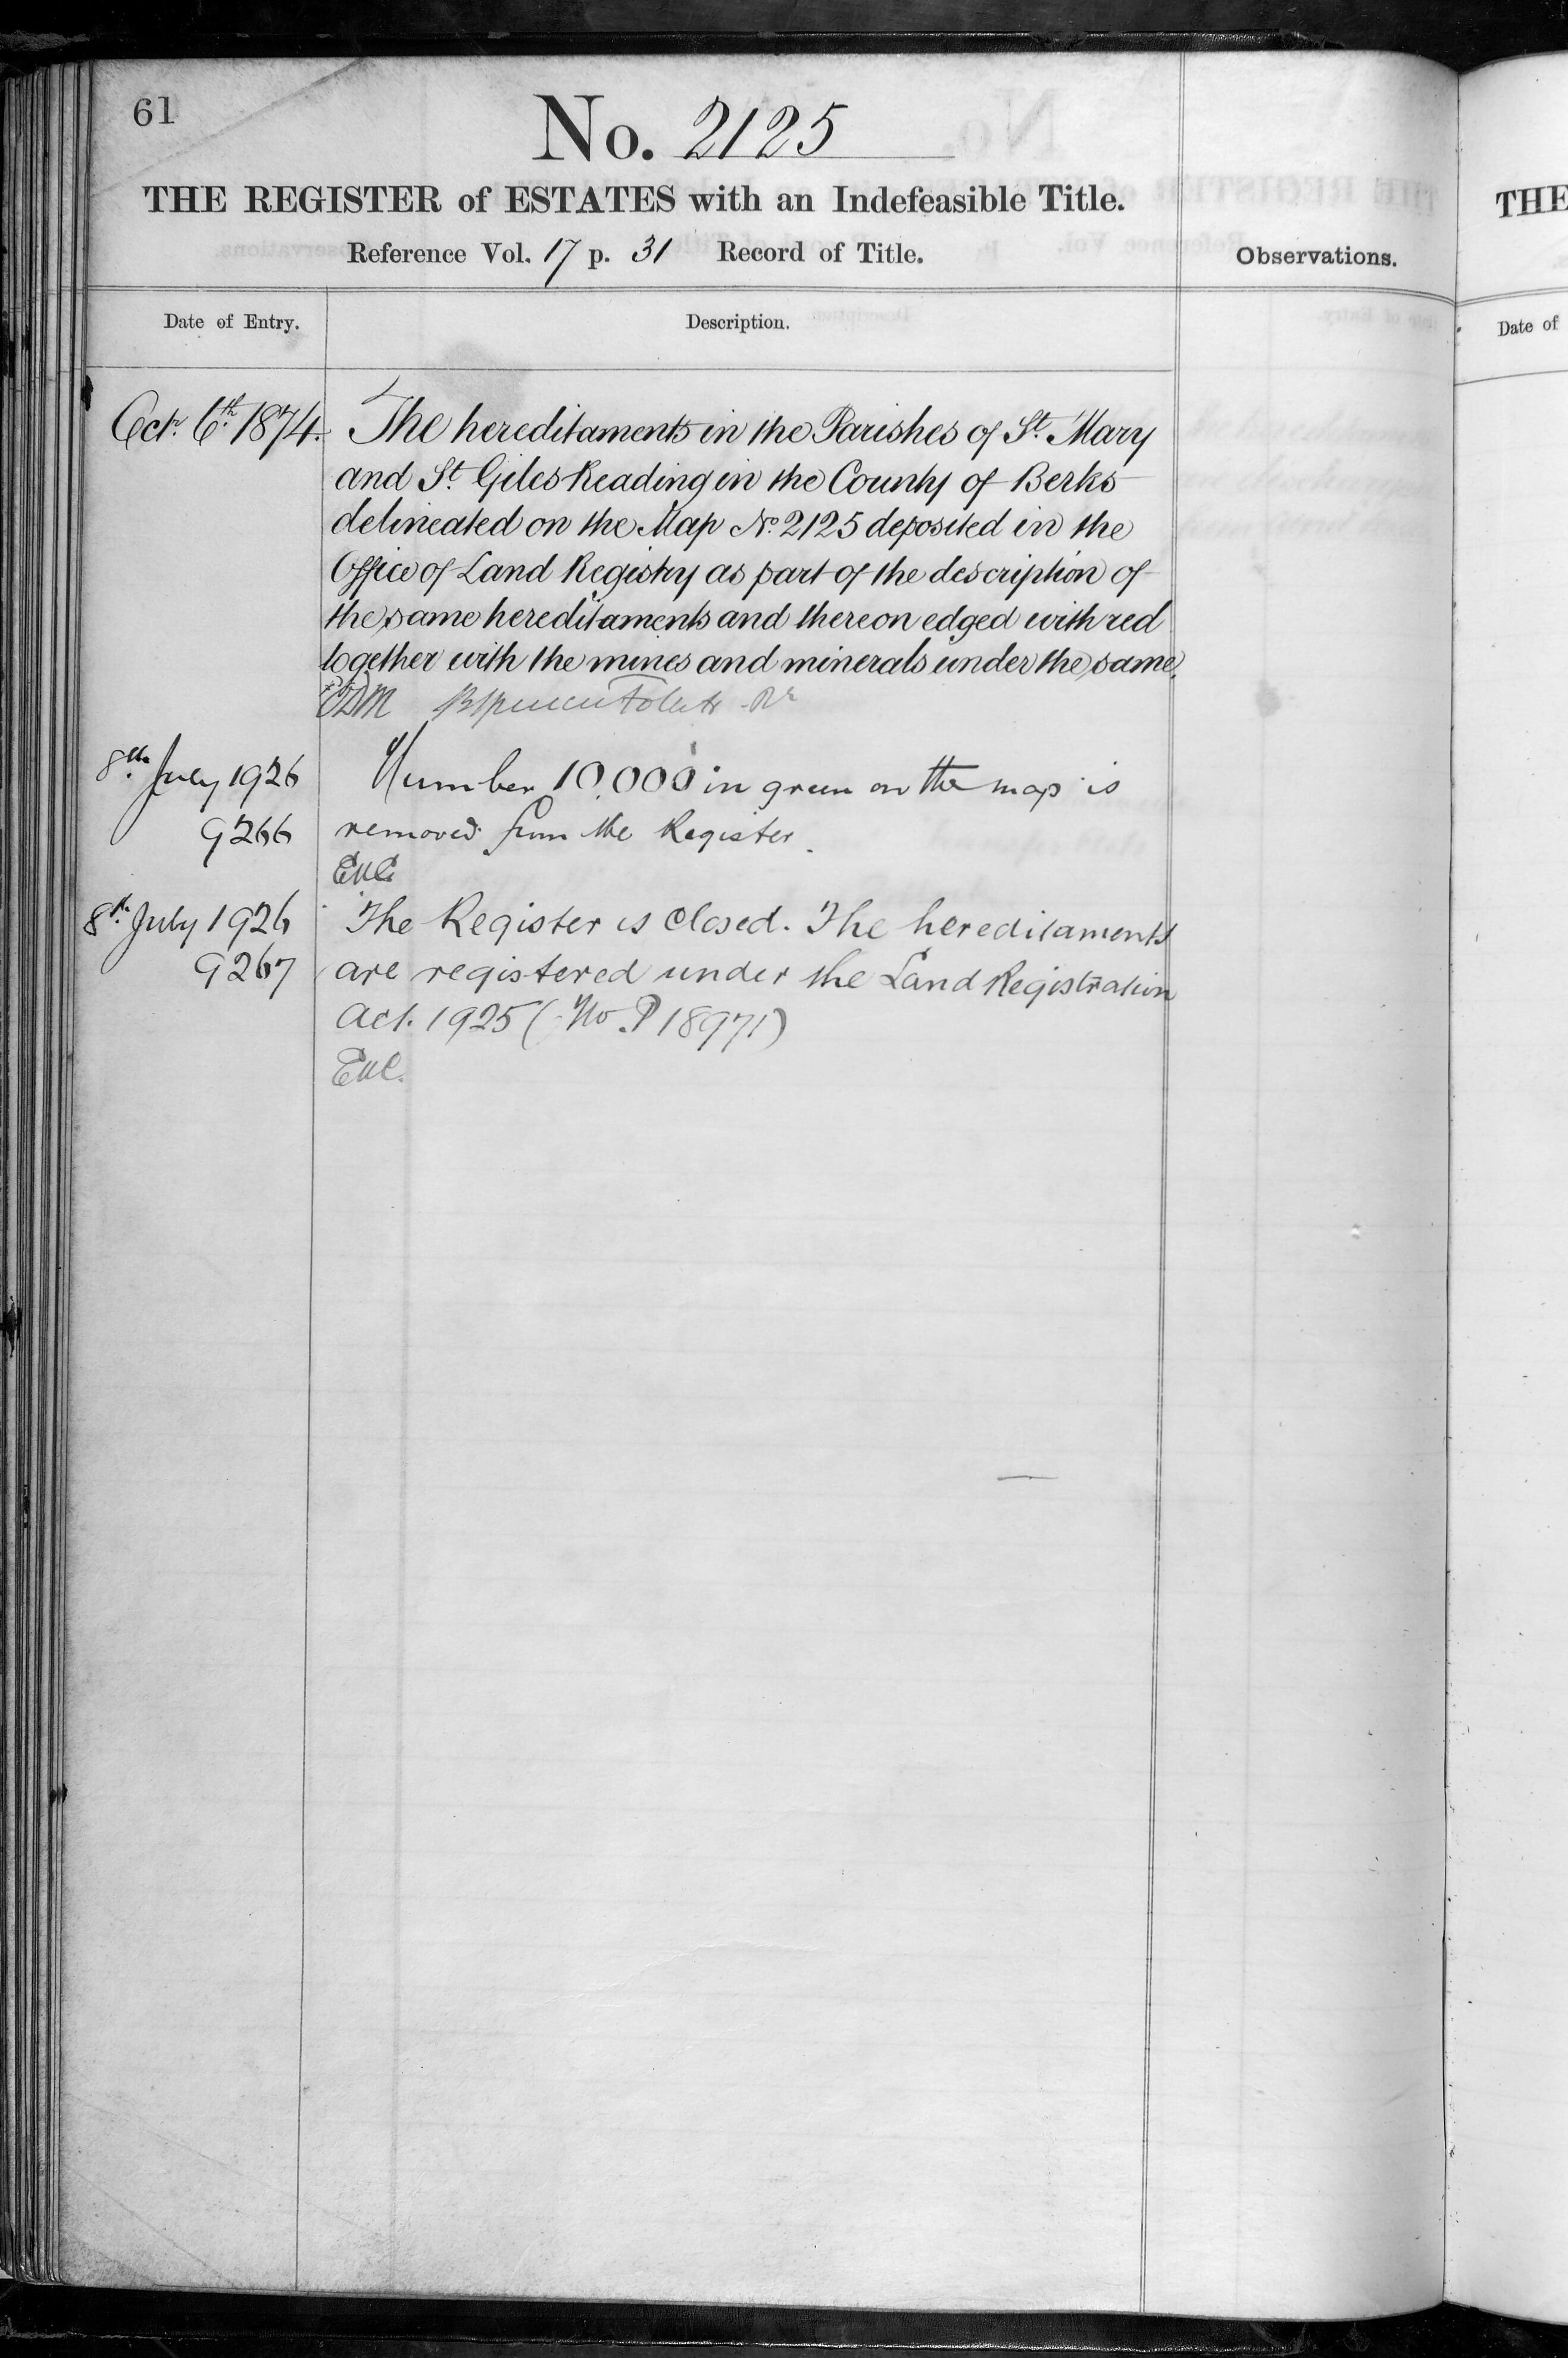 61
No. 2125
THE REGISTER of ESTATES with an Indefeasible Title.
Reference Vol. 17 p. 31 Record of Title.
Observations.
Date of Entry.
Description.
Octr. 6th. 1874.
The hereditaments in the Parishes of St. Mary
and St. Giles Reading in the County of Berks
delineated on the Map No. 2125 deposited in the
Office of Land Registry as part of the description of
the same hereditaments and thereon edged with red
together with the mines and minerals under the same.
8th. July 1926
9266
Number 10,000 in green on the map is
removed from the Register.
8th. July 1926
9267
The Register is closed. The hereditaments
are registered under the Land Registration
Act. 1925 (No P 18971)
THE
Date of